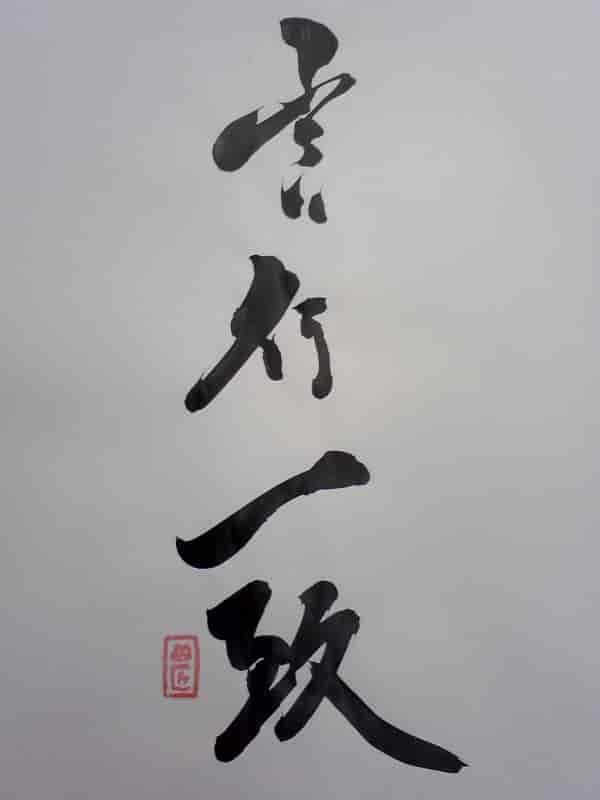 言行一致